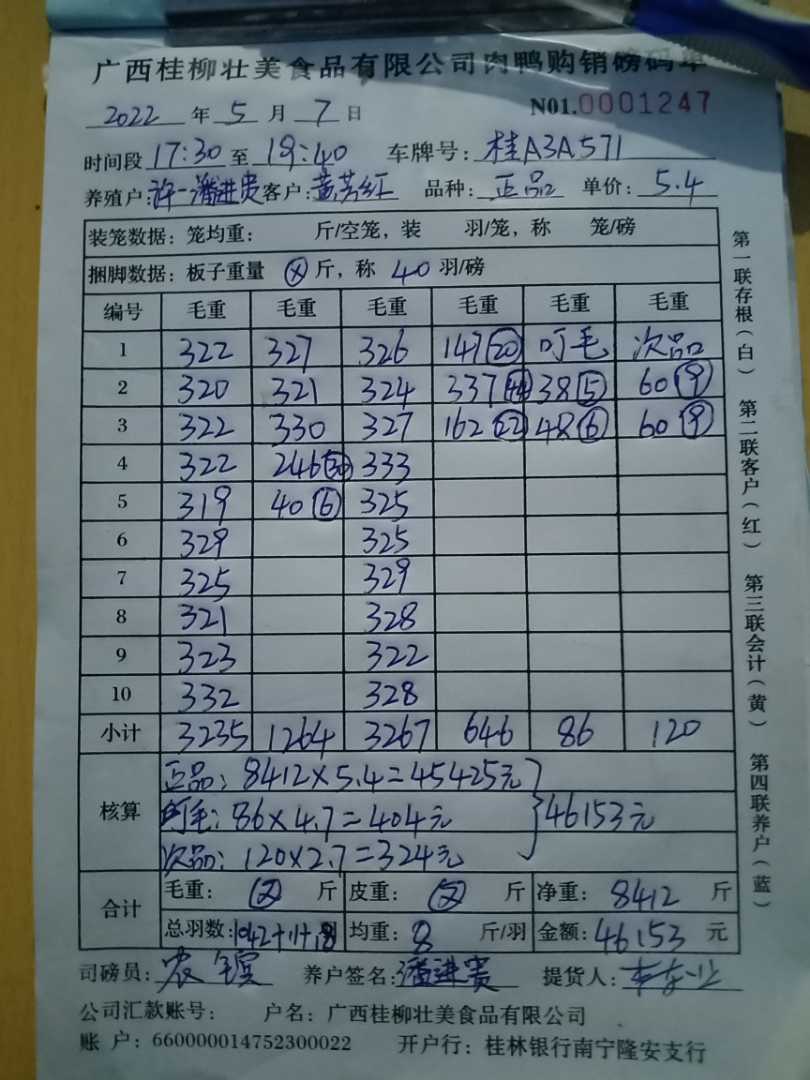 广西桂柳壮美食品有限公司肉鸭购销磅码单
2022 年 5 月 7 日 N01.0001247
时间段 17:30 至 19:40 车牌号: 桂A3A571
养殖户: 许一潘进贵 客户: 黄芳红 品种: 正品 单价: 5.4
装笼数据: 笼均重: 斤/空笼, 装 羽/笼, 称 笼/磅
捆脚数据: 板子重量 斤, 称 40 羽/磅
编号 毛重 毛重 毛重 毛重 毛重 毛重
1 322 327 326 147(20) 叮毛 次品
2 320 321 324 337(44) 38(5) 60(9)
3 322 330 327 162(22) 48(6) 60(9)
4 322 246(30) 333
5 319 40(6) 325
6 329 325
7 325 329
8 321 328
9 323 322
10 332 328
小计 3235 1264 3267 646 86 120
核算 正品: 8412×5.4=45425元
叮毛: 86×4.7=404元 }46153元
次品: 120×2.7=324元
合计 毛重: 斤 皮重: 斤 净重: 8412 斤
总羽数: 1042+11+18 均重: 8 斤/羽 金额: 46153 元
司磅员: 农 养户签名: 潘进贵 提货人:
公司汇款账号: 户名: 广西桂柳壮美食品有限公司
账 户: 660000014752300022 开户行: 桂林银行南宁隆安支行
第一联存根(白) 第二联客户(红) 第三联会计(黄) 第四联养户(蓝)